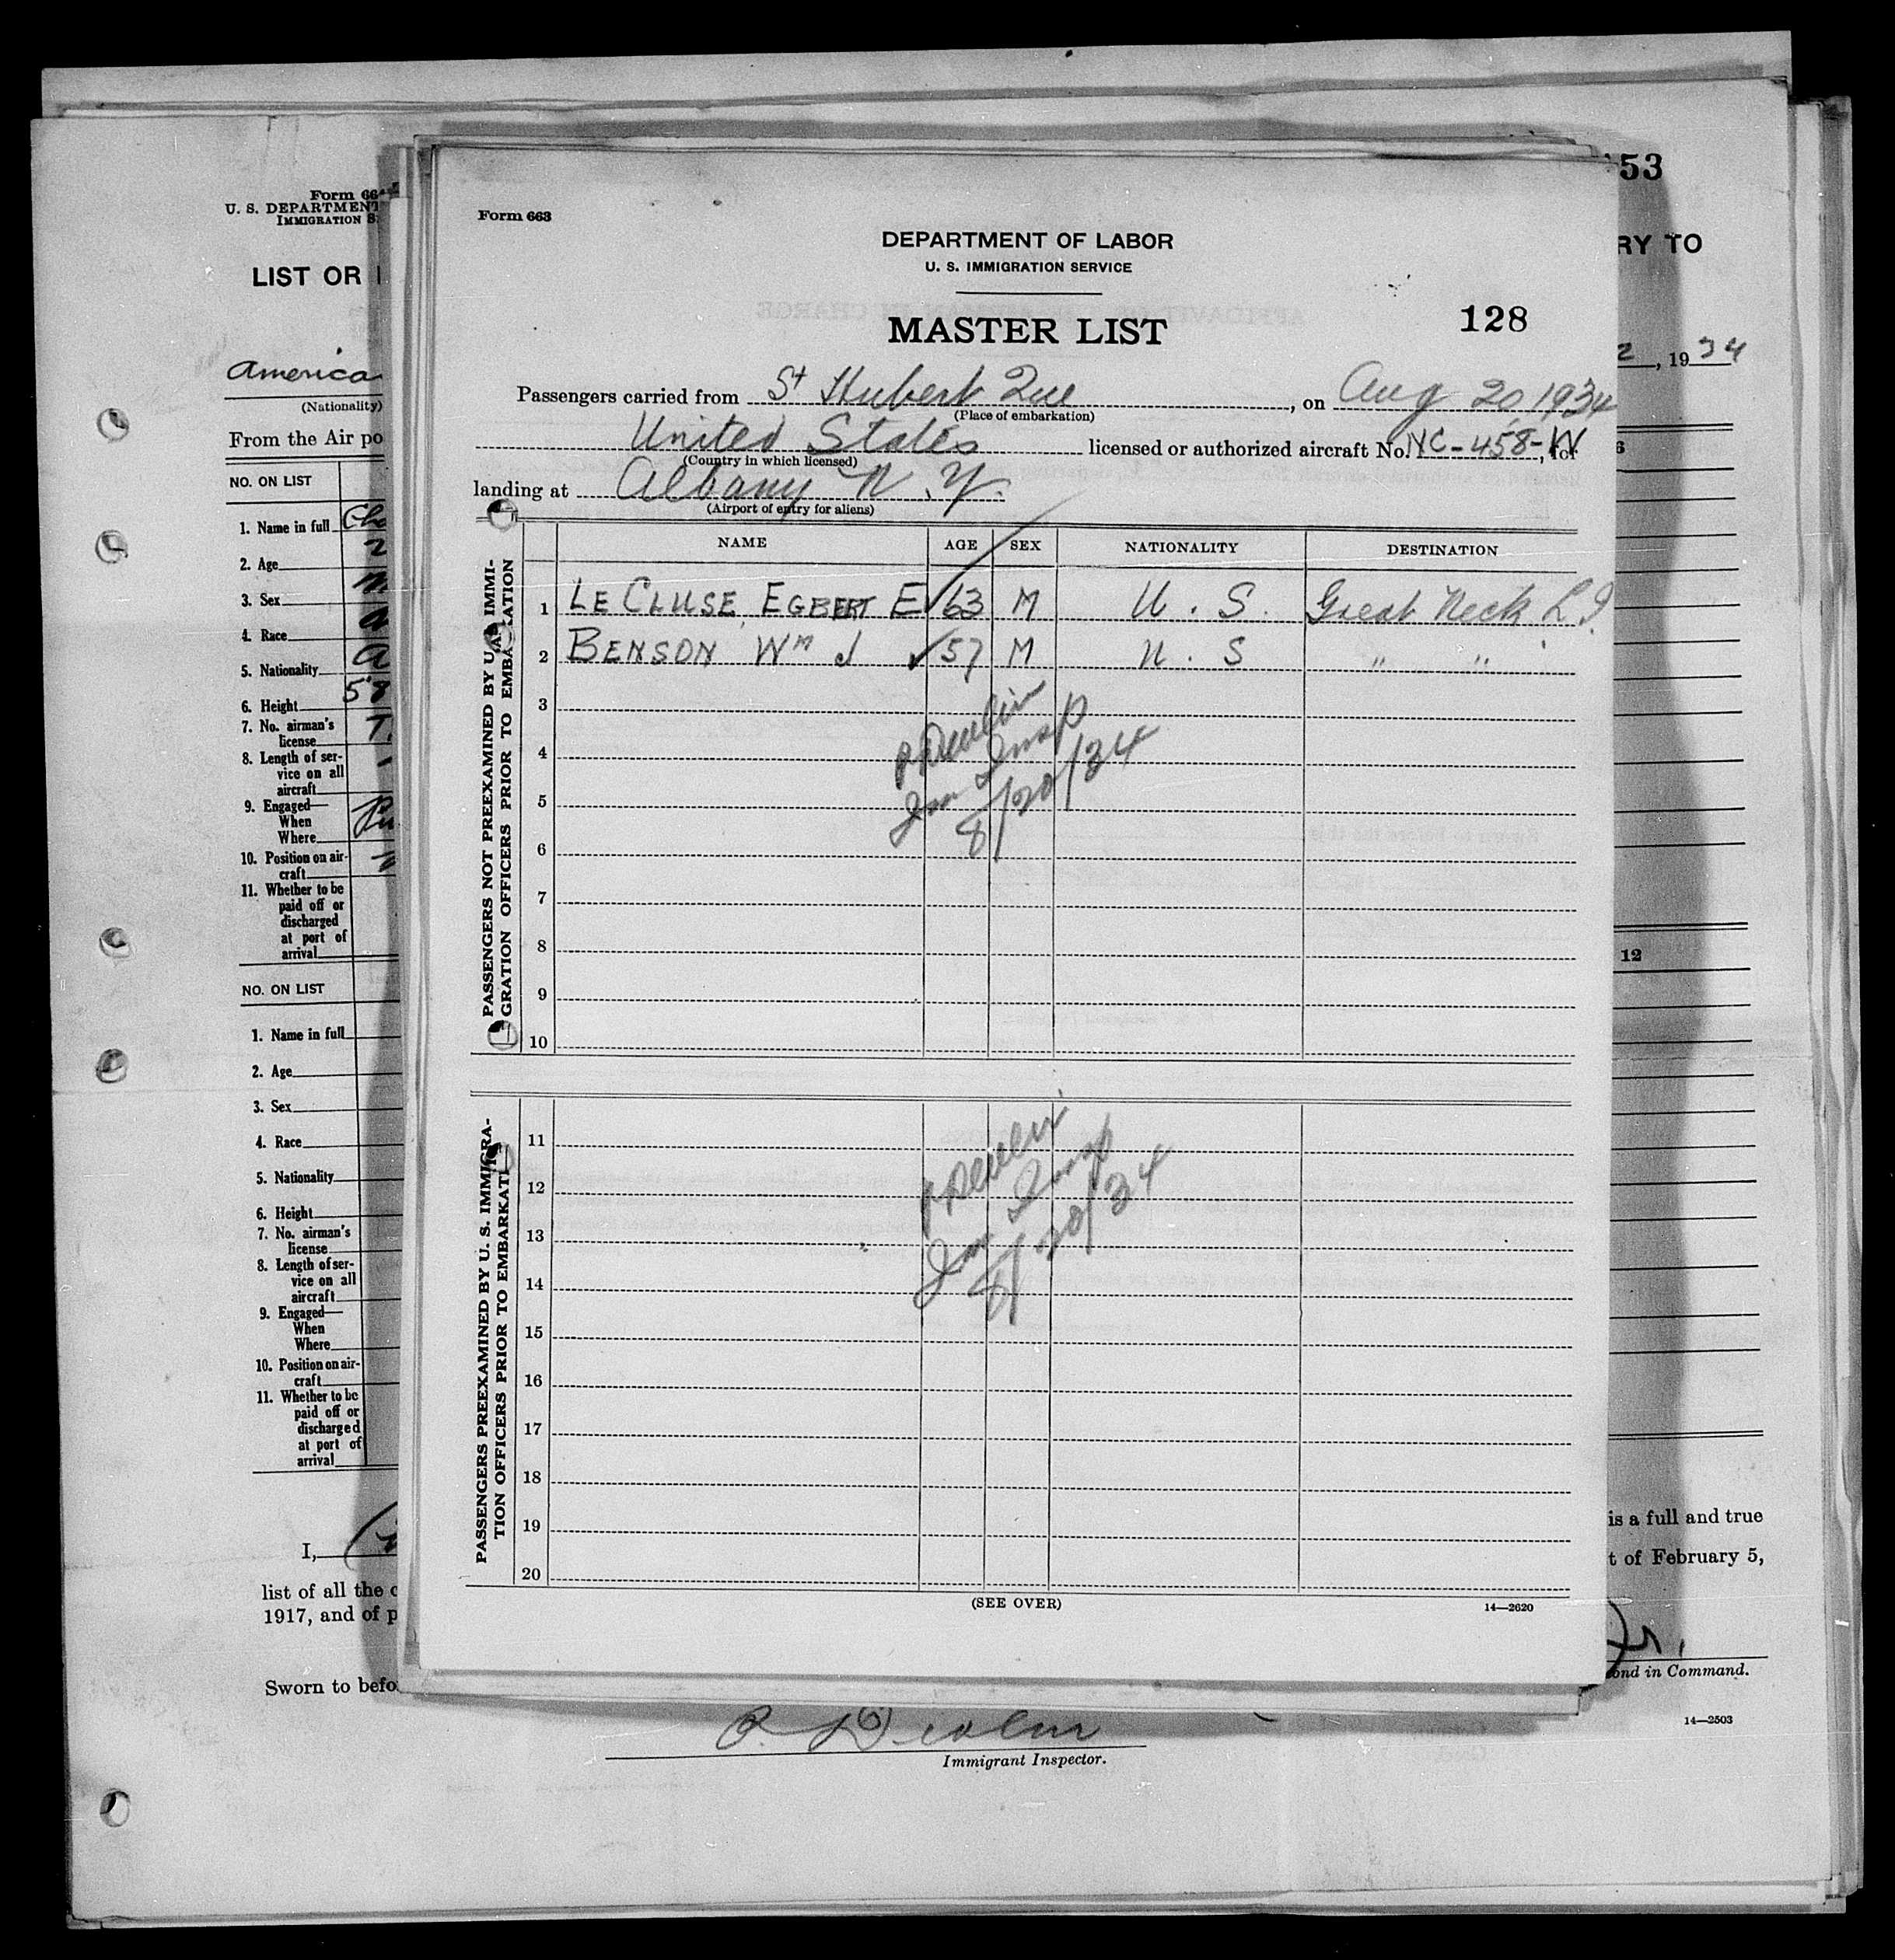 Form 663
DEPARTMENT OF LABOR
U. S. IMMIGRATION SERVICE
MASTER LIST
128
Passengers carried from St Hubert Que, on Aug 20, 1934
(Place of embarkation)
United States licensed or authorized aircraft No. NC-458-W, for
(Country in which licensed)
landing at Albany N. Y.
(Airport of entry for aliens)
NAME AGE SEX NATIONALITY DESTINATION
PASSENGERS NOT PREEXAMINED BY U. S. IMMI-
GRATION OFFICERS PRIOR TO EMBARKATION
1 LE CLUSE, EGBERT E ✓ 63 M U. S. Great Neck L I.
2 BENSON Wm J ✓ 57 M U. S " "
3
4
5
6
7
8
9
10
P Devlin
Imm Insp
8/20/34
PASSENGERS PREEXAMINED BY U. S. IMMIGRA-
TION OFFICERS PRIOR TO EMBARKATION
11
12
13
14
15
16
17
18
19
20
P Devlin
Imm Insp
8/20/34
(SEE OVER)
14—2620
Form 66
U. S. DEPARTMENT
IMMIGRATION S
LIST OR
America
(Nationality)
From the Air po
NO. ON LIST
1. Name in full
2. Age
3. Sex
4. Race
5. Nationality
6. Height
7. No. airman's
license
8. Length of ser-
vice on all
aircraft
9. Engaged—
When
Where
10. Position on air-
craft
11. Whether to be
paid off or
discharged
at port of
arrival
NO. ON LIST
1. Name in full
2. Age
3. Sex
4. Race
5. Nationality
6. Height
7. No. airman's
license
8. Length of ser-
vice on all
aircraft
9. Engaged—
When
Where
10. Position on air-
craft
11. Whether to be
paid off or
discharged
at port of
arrival
I,
list of all the c
1917, and of p
Sworn to befo
53
RY TO
2, 1934
6
12
is a full and true
t of February 5,
Jr.
ond in Command.
14—2503
P. Devlin
Immigrant Inspector.